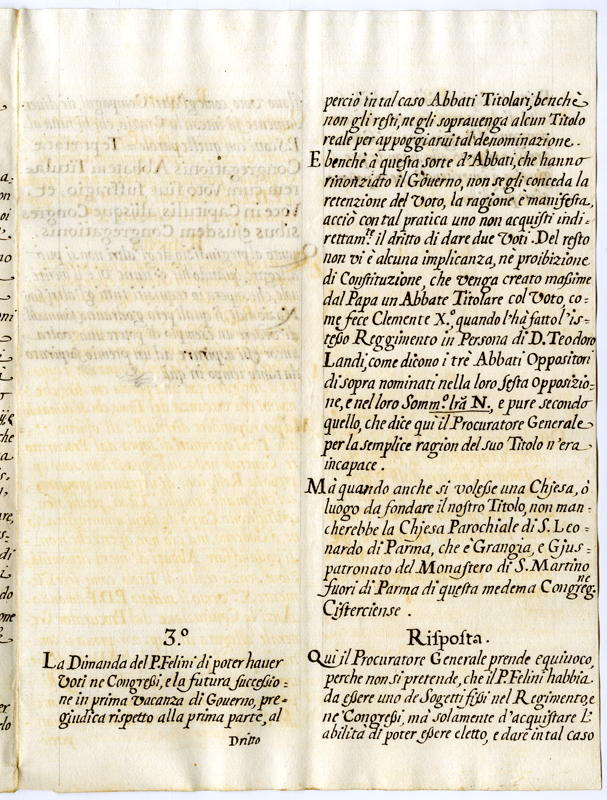 perciò in tal caso Abbati Titolari, benchè
non gli resti, ne gli soprauenga alcun Titolo
reale per appoggiarui tal denominazione.
E benchè à questa sorte d'Abbati, che hanno
rinonziato il Gouerno, non se gli conceda la
retenzione del Voto, la ragione e manifesta,
acciò con tal pratica uno non acquisti indi-
rettam.te il dritto di dare due Voti. Del resto
non vi è alcuna implicanza, nè proibizione
di Constituzione, che venga creato maßime
dal Papa un Abbate Titolare col Voto, co-
me fece Clemente X.º, quando l'hà fatto l'is-
teßo Reggimento in Persona di D. Teodoro
Landi, come dicono i trè Abbati Oppositori
di sopra nominati nella loro sesta Opposizio-
ne, e nel loro Somm.º lrã N., e pure secondo
quello, che dice quì il Procuratore Generale
per la semplice ragion del suo Titolo n'era
incapace.
Mà quando anche si voleße una Chjesa, ò
luogo da fondare il nostro Titolo, non man-
cherebbe la Chjesa Parochiale di S. Leo-
nardo di Parma, che è Grangia, e Gjus-
patronato del Monastero di S. Martino
fuori di Parma di questa medema Congreg.ne
Cisterciense.
3.º
La Dimanda del P. Felini di poter hauer
Voti ne Congreßi, e la futura succeßio:
ne in prima vacanza di Gouerno, pre-
giudica rispetto alla prima parte, al
Dritto
Risposta.
Quì il Procuratore Generale prende equiuoco,
perche non si pretende, che il P. Felini habbia
da eßere uno de Sogetti fißi nel Regimento, e
ne' Congreßi, mà solamente d'acquistare l'
abilità di poter eßere eletto, e dare in tal caso